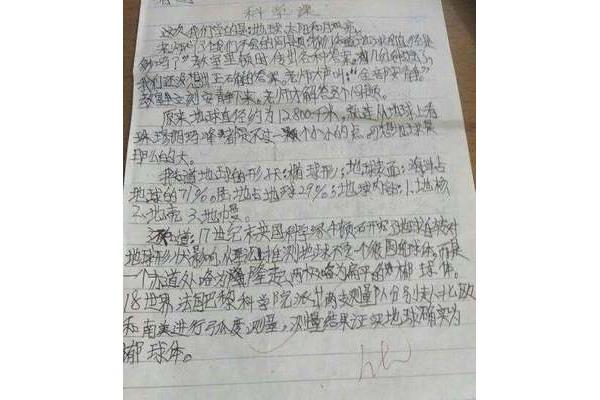 科学课
这次我们学的是:地球、太阳和月亮。
老师问了让我们
教室里顿时传出各种答案。几分钟过去了,
我们还没想出正确的答案。老师大声叫:“全都安静”
教室里立刻安静下来。老师才解答这个问题。
原来地球直径约为12800千米,就连从地球上看
珠穆朗玛峰都只不过一颗小小的点,地球是
那么的大。
我知道地球的形状:椭球形;地球表面:海洋占
地球的71%。陆地占地球29%;地球内部:1.地核
2.地壳 3.地幔。
知道:17世纪末英国科学家牛顿研究了地球自转对
地球形状影响,从理论上推测地球不是一个很圆的球体。而是
一个赤道处略为隆起,两极略为扁平的椭球体。
18世界,法国巴黎科学院派出两支测量队分别去北欧
和南美进行弧度测量,测量结果证实地球确实为
椭球体。